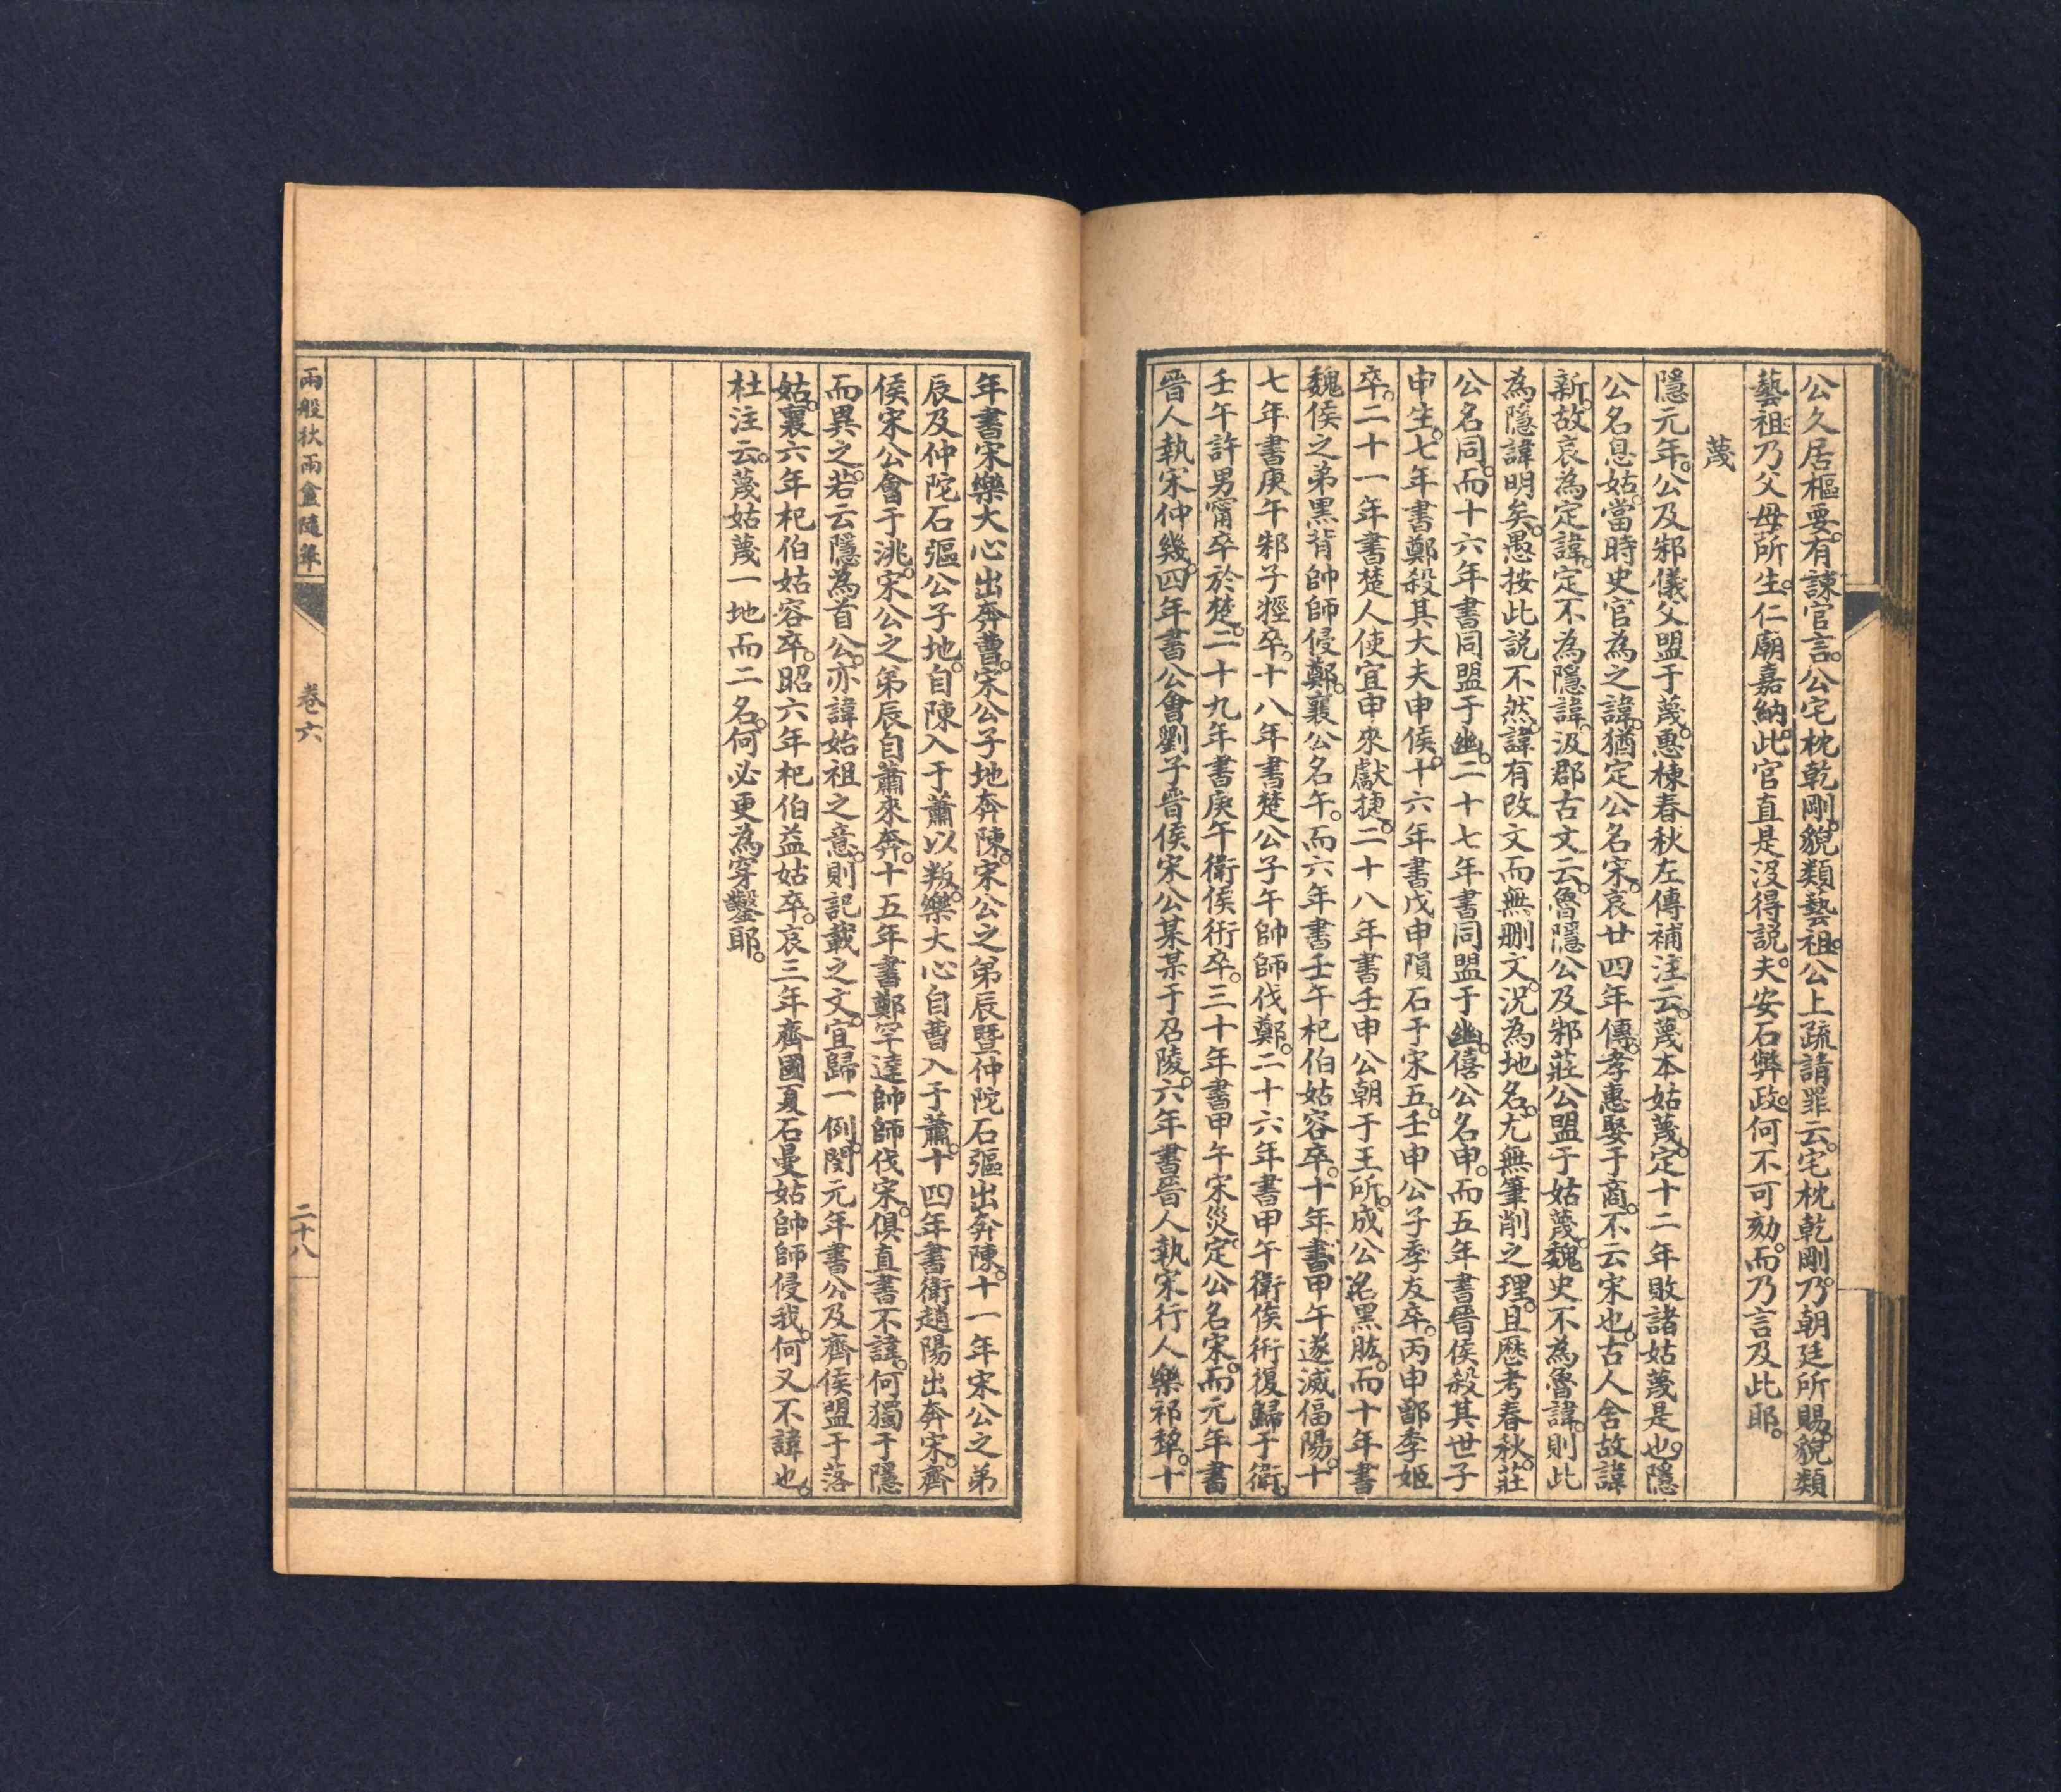 公久居樞要。有諫官言。公宅枕乾剛。貌類藝祖。公上疏請罪云。宅枕乾剛。乃朝廷所賜。貌類
藝祖。乃父母所生。仁廟嘉納。此官直是沒得說。夫安石弊政。何不可劾。而乃言及此耶。
蔑
隱元年。公及邾儀父盟于蔑。惠棟春秋左傳補注云。蔑本姑蔑。定十二年敗諸姑蔑是也。隱
公名息姑。當時史官為之諱。猶定公名宋。哀廿四年傳。孝惠娶于商。不云宋也。古人舍故諱
新。故哀為定諱。定不為隱諱。汲郡古文云。魯隱公及邾莊公盟于姑蔑。魏史不為魯諱。則此
為隱諱明矣。愚按此說不然。諱有改文而無刪文。況為地名。尤無筆削之理。且歷考春秋。莊
公名同。而十六年書同盟于幽。二十七年書同盟于幽。僖公名申。而五年書晉侯殺其世子
申生。七年書鄭殺其大夫申侯。十六年書戊申隕石于宋五。壬申公子季友卒。丙申鄫季姬
卒。二十一年書楚人使宜申來獻捷。二十八年書壬申公朝于王所。成公名黑肱。而十年書
魏侯之弟黑背帥師侵鄭。襄公名午。而六年書壬午杞伯姑容卒。十年書甲午遂滅偪陽。十
七年書庚午邾子牼卒。十八年書楚公子午帥師伐鄭。二十六年書甲午衛侯衎復歸于衛。
壬午許男甯卒於楚。二十九年書庚午衛侯衎卒。三十年書甲午宋災。定公名宋。而元年書
晉人執宋仲幾。四年書公會劉子晉侯宋公某某于召陵。六年書晉人執宋行人樂祁犂。十
年書宋樂大心出奔曹。宋公子地奔陳。宋公之弟辰暨仲陀石彄出奔陳。十一年宋公之弟
辰及仲陀石彄公子地。自陳入于蕭以叛。樂大心自曹入于蕭。十四年書衛趙陽出奔宋。齊
侯宋公會于洮。宋公之弟辰自蕭來奔。十五年書鄭罕達帥師伐宋。俱直書不諱。何獨于隱
而異之。若云隱為首公。亦諱始祖之意。則記載之文。宜歸一例。閔元年書公及齊侯盟于落
姑。襄六年杞伯姑容卒。昭六年杞伯益姑卒。哀三年齊國夏石曼姑帥師侵我。何又不諱也。
杜注云。蔑姑蔑一地而二名。何必更為穿鑿耶。
兩般秋雨盦隨筆
卷六
二十八